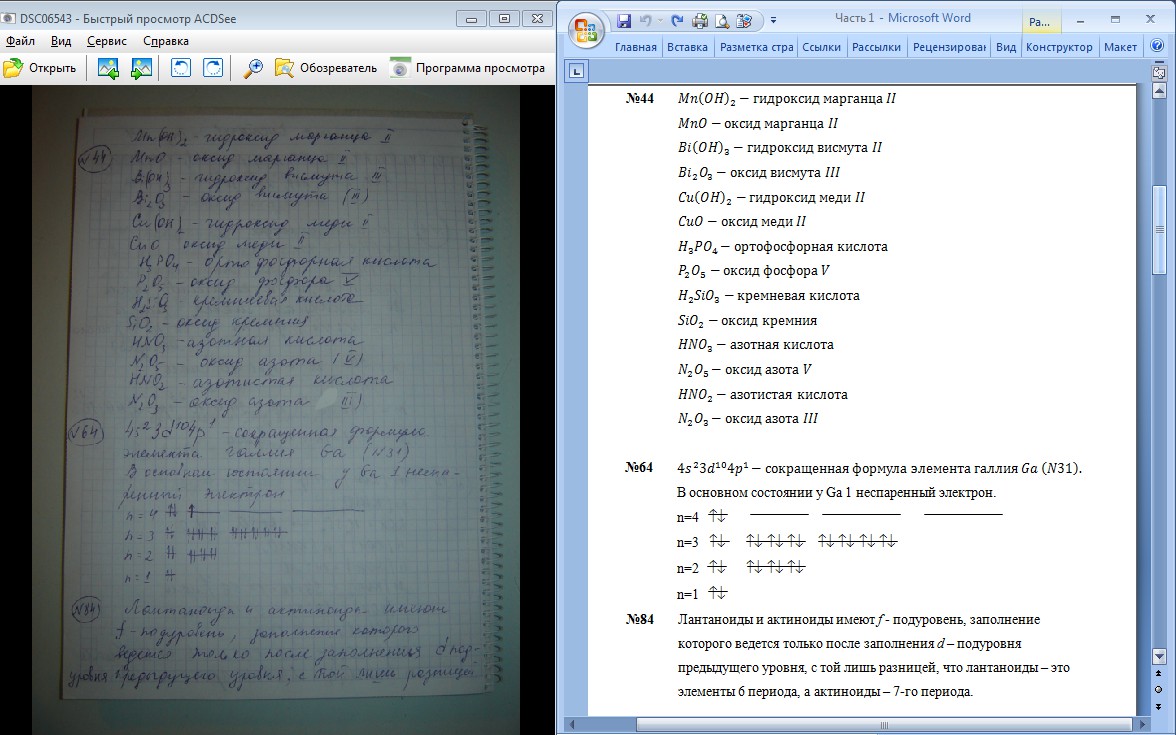 DSC06543 - Быстрый просмотр ACDSee
Файл Вид Сервис Справка
Открыть Обозреватель Программа просмотра
Mn(OH)2 - гидроксид марганца II
№44 MnO - оксид марганца II
Bi(OH)3 - гидроксид висмута III
Bi2O3 - оксид висмута (III)
Cu(OH)2 - гидроксид меди II
CuO оксид меди II
H3PO4 - орто фосфорная кислота
P2O5 - оксид фосфора V
H2SiO3 - кремниевая кислота
SiO2 - оксид кремния
HNO3 - азотная кислота
N2O5 - оксид азота (V)
HNO2 - азотистая кислота
N2O3 - оксид азота III)
№64 4s²3d¹⁰4p¹ - сокращенная формула
элемента галлия Ga (N31)
В основном состоянии у Ga 1 неспа-
ренный электрон
n=4
n=3
n=2
n=1
№84 Лантаноиды и актиноиды имеют
f-подуровень, заполнение которого
ведется только после заполнения d под-
уровня предыдущего уровня, с той лишь разницей
Часть 1 - Microsoft Word
Ра...
Главная Вставка Разметка стра Ссылки Рассылки Рецензирован Вид Конструктор Макет
L
№44 Mn(OH)₂ − гидроксид марганца II
MnO − оксид марганца II
Bi(OH)₃ − гидроксид висмута II
Bi₂O₃ − оксид висмута III
Cu(OH)₂ − гидроксид меди II
CuO − оксид меди II
H₃PO₄ − ортофосфорная кислота
P₂O₅ − оксид фосфора V
H₂SiO₃ − кремневая кислота
SiO₂ − оксид кремния
HNO₃ − азотная кислота
N₂O₅ − оксид азота V
HNO₂ − азотистая кислота
N₂O₃ − оксид азота III
№64 4s²3d¹⁰4p¹ − сокращенная формула элемента галлия Ga (N31).
В основном состоянии у Ga 1 неспаренный электрон.
n=4 ↑↓
n=3 ↑↓ ↑↓↑↓↑↓ ↑↓↑↓↑↓↑↓
n=2 ↑↓ ↑↓↑↓↑↓
n=1 ↑↓
№84 Лантаноиды и актиноиды имеют f - подуровень, заполнение
которого ведется только после заполнения d – подуровня
предыдущего уровня, с той лишь разницей, что лантаноиды – это
элементы 6 периода, а актиноиды – 7-го периода.